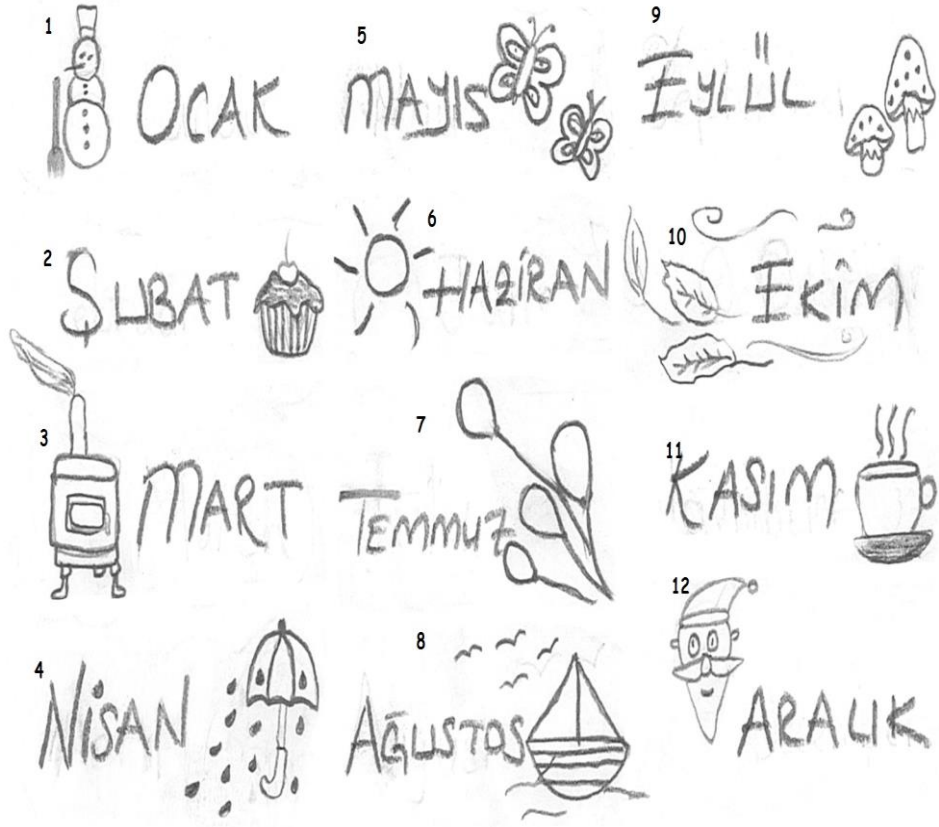 1
OCAK
2
ŞUBAT
3
MART
4
NİSAN
5
MAYIS
6
HAZİRAN
7
TEMMUZ
8
AĞUSTOS
9
EYLÜL
10
EKİM
11
KASIM
12
ARALIK